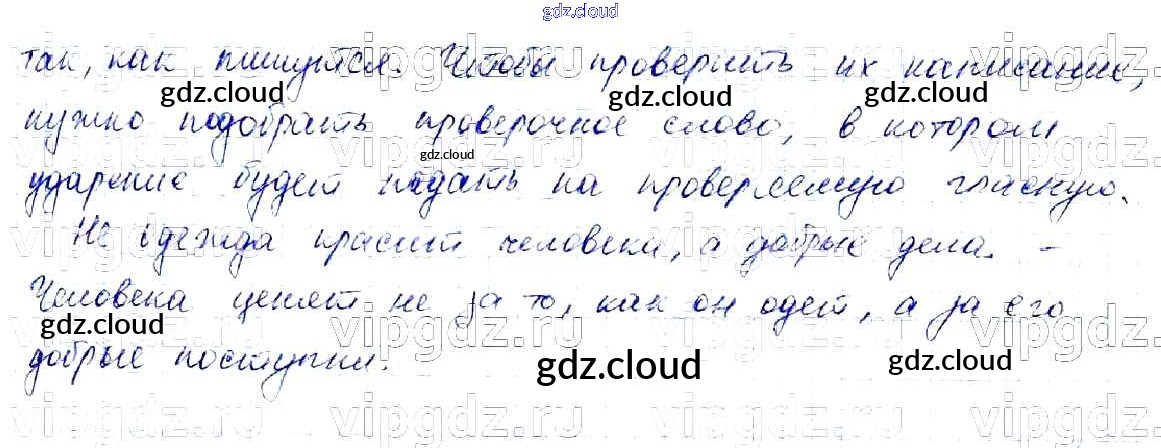 gdz.cloud
так, как пишутся. Чтобы проверить их написание,
gdz.cloud gdz.cloud gdz.cloud
нужно подобрать проверочное слово, в котором
vipgdz.ru vipgdz.ru vipgdz.ru
gdz.cloud
ударение будет падать на проверяемую гласную.
Не одежда красит человека, а добрые дела. -
Человека ценят не за то, как он одет, а за его
gdz.cloud gdz.cloud
vipgdz.ru vipgdz.ru vipgdz.ru
добрые поступки.
gdz.cloud gdz.cloud
vipgdz.ru vipgdz.ru vipgdz.ru